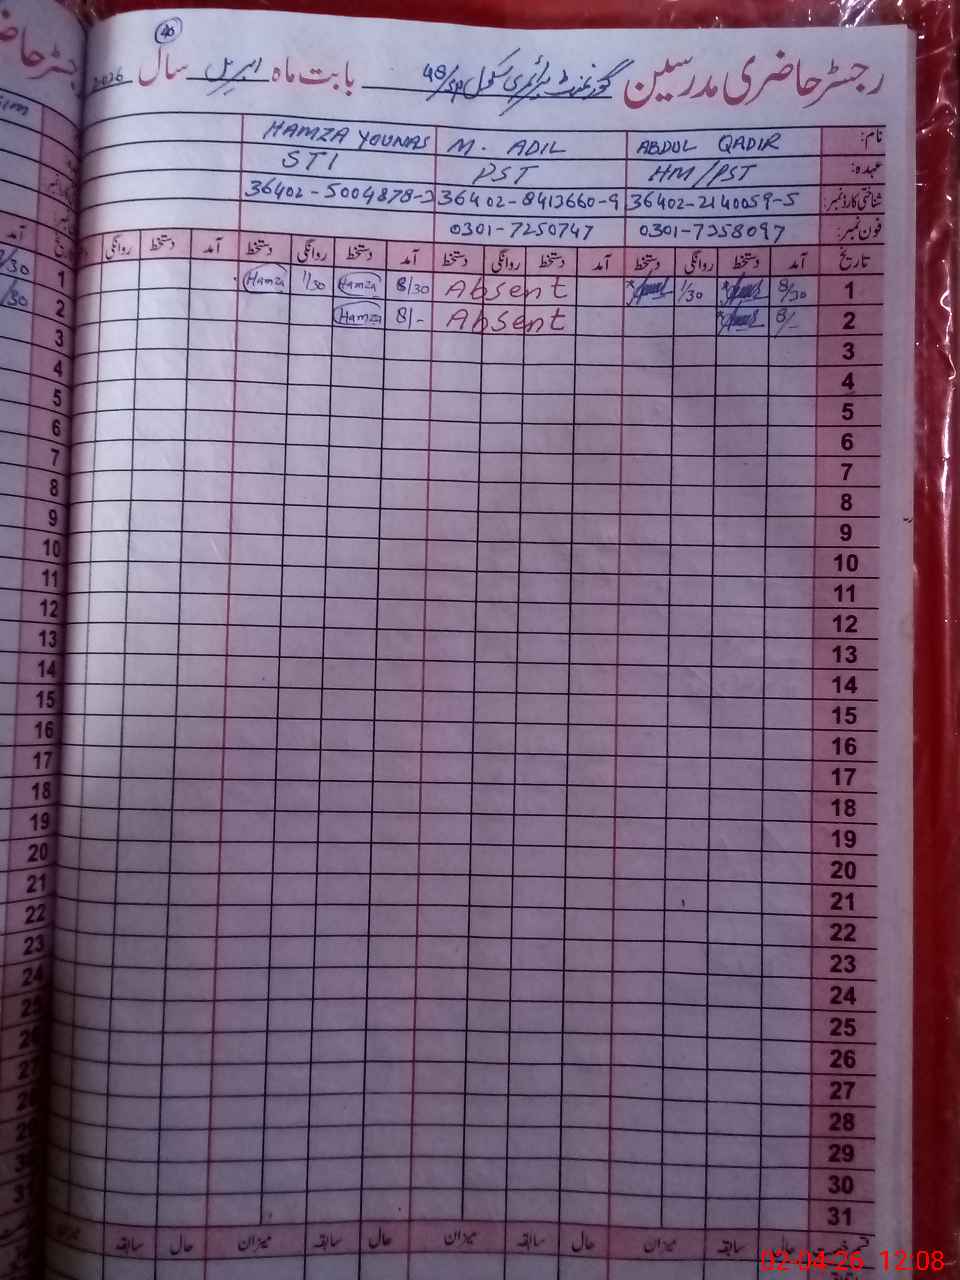 40
رجسٹر حاضری مدرسین گورنمنٹ پرائمری سکول 48/SP بابت ماہ اپریل سال 2026
نام: ABDUL QADIR M. ADIL HAMZA YOUNAS
عہدہ: HM/PST PST STI
شناختی کارڈ نمبر: 36402-2140059-5 36402-8413660-9 36402-5004878-3
فون نمبر: 0301-7358097 0301-7250747
تاریخ آمد دستخط روانگی دستخط آمد دستخط روانگی دستخط آمد دستخط روانگی دستخط آمد دستخط روانگی
1 8/30 1/30 Absent 8/30 Hamza 1/30 Hamza
2 8/- Absent 8/- Hamza
3
4
5
6
7
8
9
10
11
12
13
14
15
16
17
18
19
20
21
22
23
24
25
26
27
28
29
30
31
حال سابقہ میزان حال سابقہ میزان حال سابقہ میزان حال سابقہ میزان
02-04-26 12:08